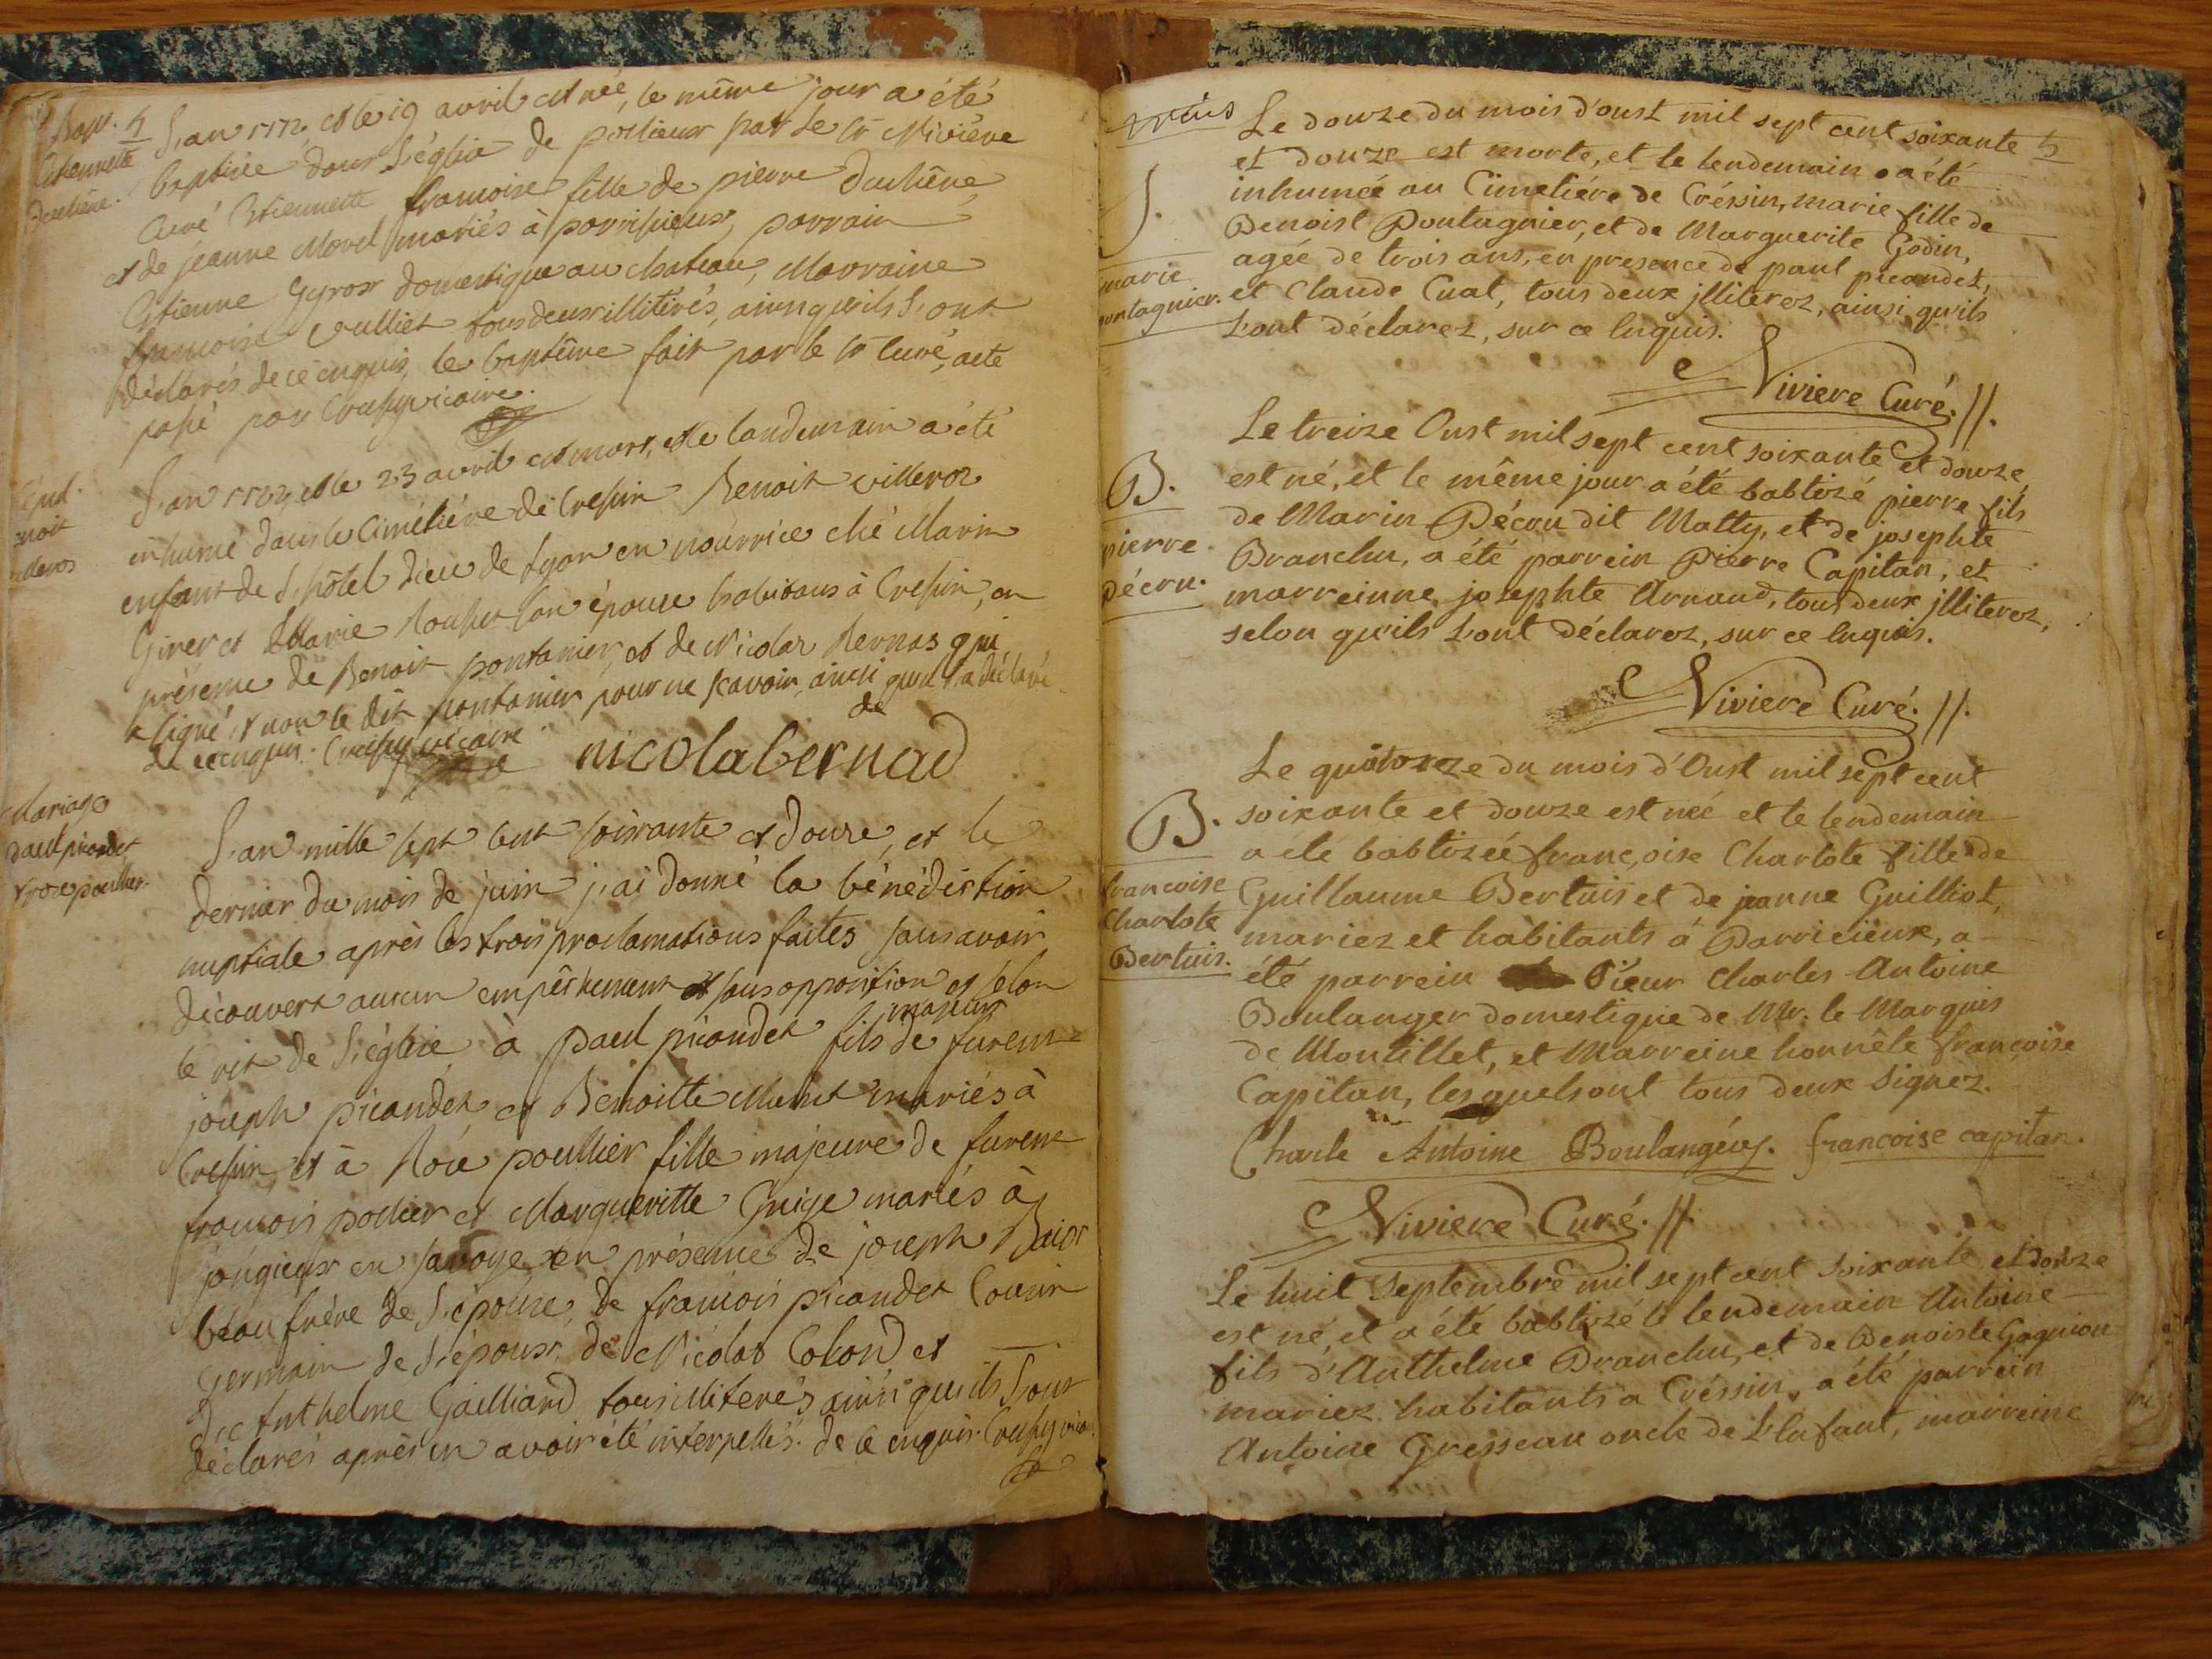 Bapt. 5
Etiennette
Duchêne.
L'an 1772, et le 19 avril est née, le même jour a été
baptisée dans l'église de polieux par le sr Nivière
Curé Etiennette francoise fille de pierre Duchêne
et de jeanne Morel mariés à parrisieux, parrain
Etienne Gyrox domestique au chateau, Marraine
francoise vulliet tous deux illitérés, ainsi qu'ils l'ont
déclarés de ce enquis, le baptême fait par le sr curé, acte
passé par Crassy vicaire.
Sepul.
enoit
villeros
L'an 1772, et le 23 avril est mort, et le landemain a été
inhumé dans le Cimétiére de Cressin Benoit villeros
enfant de L'hôtel Dieu de Lyon en nourrice ché Marin
Girer et Marie Rousset son épouse habitans à Cressin, en
présence de Benoit pontanier, et de Nicolas Bernas qui
a signé, et non le dit pontanier pour ne scavoir, ainsi qu'il l'a déclaré
de ce enquis. Crassy vicaire
de
nicola bernad
Mariage
paul picandet
et rose poullier.
L'an mille sept cent soixante et douze, et le
dernier du mois de juin j'ai donné la bénédiction
nuptiale après les trois proclamations faites sans avoir
découvert aucun empêchement et sans opposition et selon
le rit de L'église, à paul picandet fils majeur de furent
joseph picandet et Benoitte Mulet mariés à
Cressin, et à Rose poullier fille majeure de furent
francois pollier et Margueritte Guige mariés à
jongieux en savoye, en présence de joseph Baior
beau frére de L'épouse, de francois picandet Cousin
germain de L'époux, de Nicolas Coload et
de Anthelme Gailliard tous illiterés ainsi qu'ils L'ont
déclarés après en avoir été interpellés. de ce enquis. Crassy vic.
5
S.
marie
pontagnier.
Le douze du mois d'oust mil sept cent soixante
et douze est morte, et le lendemain a été
inhumée au Cimetiére de Créssin, marie fille de
Benoist Pontagnier, et de Marguerite Godin,
agée de trois ans, en presence de paul picandet,
et Claude Cuat, tous deux jlliterez, ainsi qu'ils
L'ont déclarez, sur ce Enquis.
Niviere Curé. //.
B.
pierre
Décru.
Le treize Oust mil sept cent soixante et douze,
est né, et le même jour a été babtizé pierre fils
de Marin Décru dit Matty, et de josephte
Branchu, a été parrein Pierre Capitan, et
marreinne josephte Arnaud, tous deux jlliterez,
selon qu'ils L'ont déclarez, sur ce Enquis.
Niviere Curé. //.
B.
francoise
Charlote
Bertuis.
Le quatorze du mois d'Oust mil sept cent
soixante et douze est née et le lendemain
a été babtizée françoise Charlote fille de
Guillaume Bertuis et de jeanne Guilliot,
mariez et habitants à Parricieux, a
été parrein Sieur Charles Antoine
Boulanger domestique de Mr. le Marquis
de Montillet, et Marreine honnête françoise
Capitan, lesquels ont tous deux signez.
Charle Antoine Boulangéy. francoise capitan.
Niviere Curé. //.
Le huit Septembre mil sept cent soixante et douze
est né, et a été babtizé le lendemain Antoine
fils d'Anthelme Branchu, et de Benoiste Gagnion
mariez habitants a Créssin, a été parrein
Antoine Gresseau oncle de L'Enfant, marreine